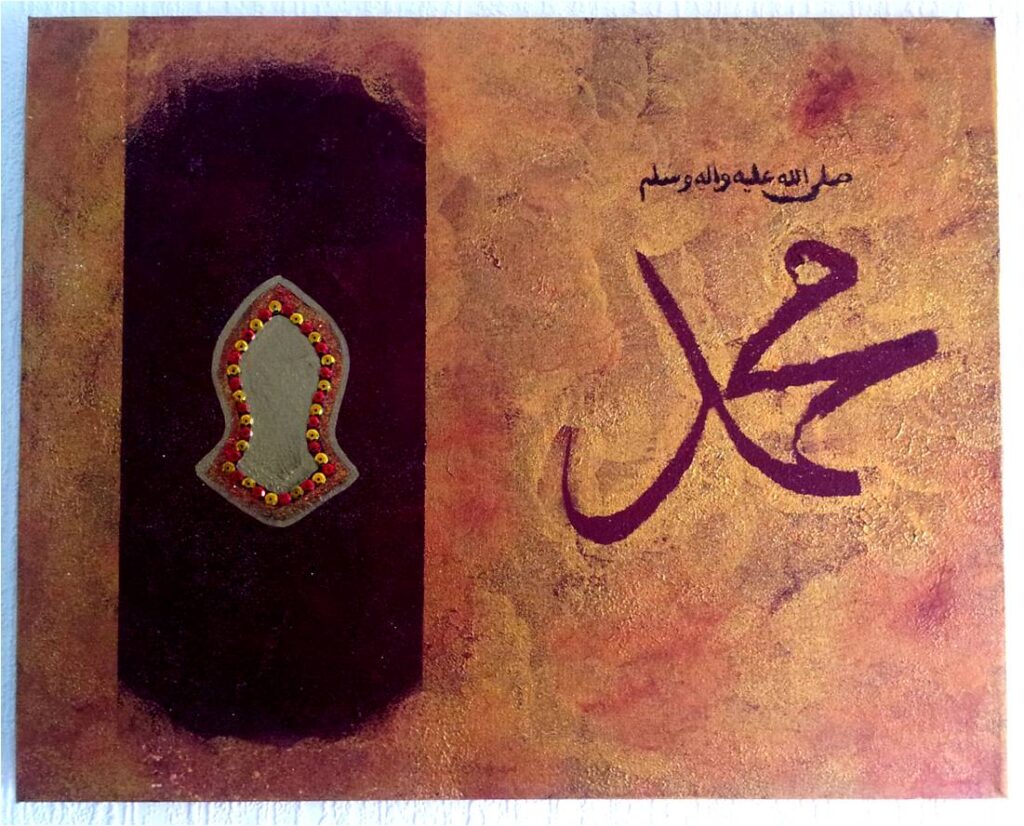 صلى الله عليه واله وسلم
محمد